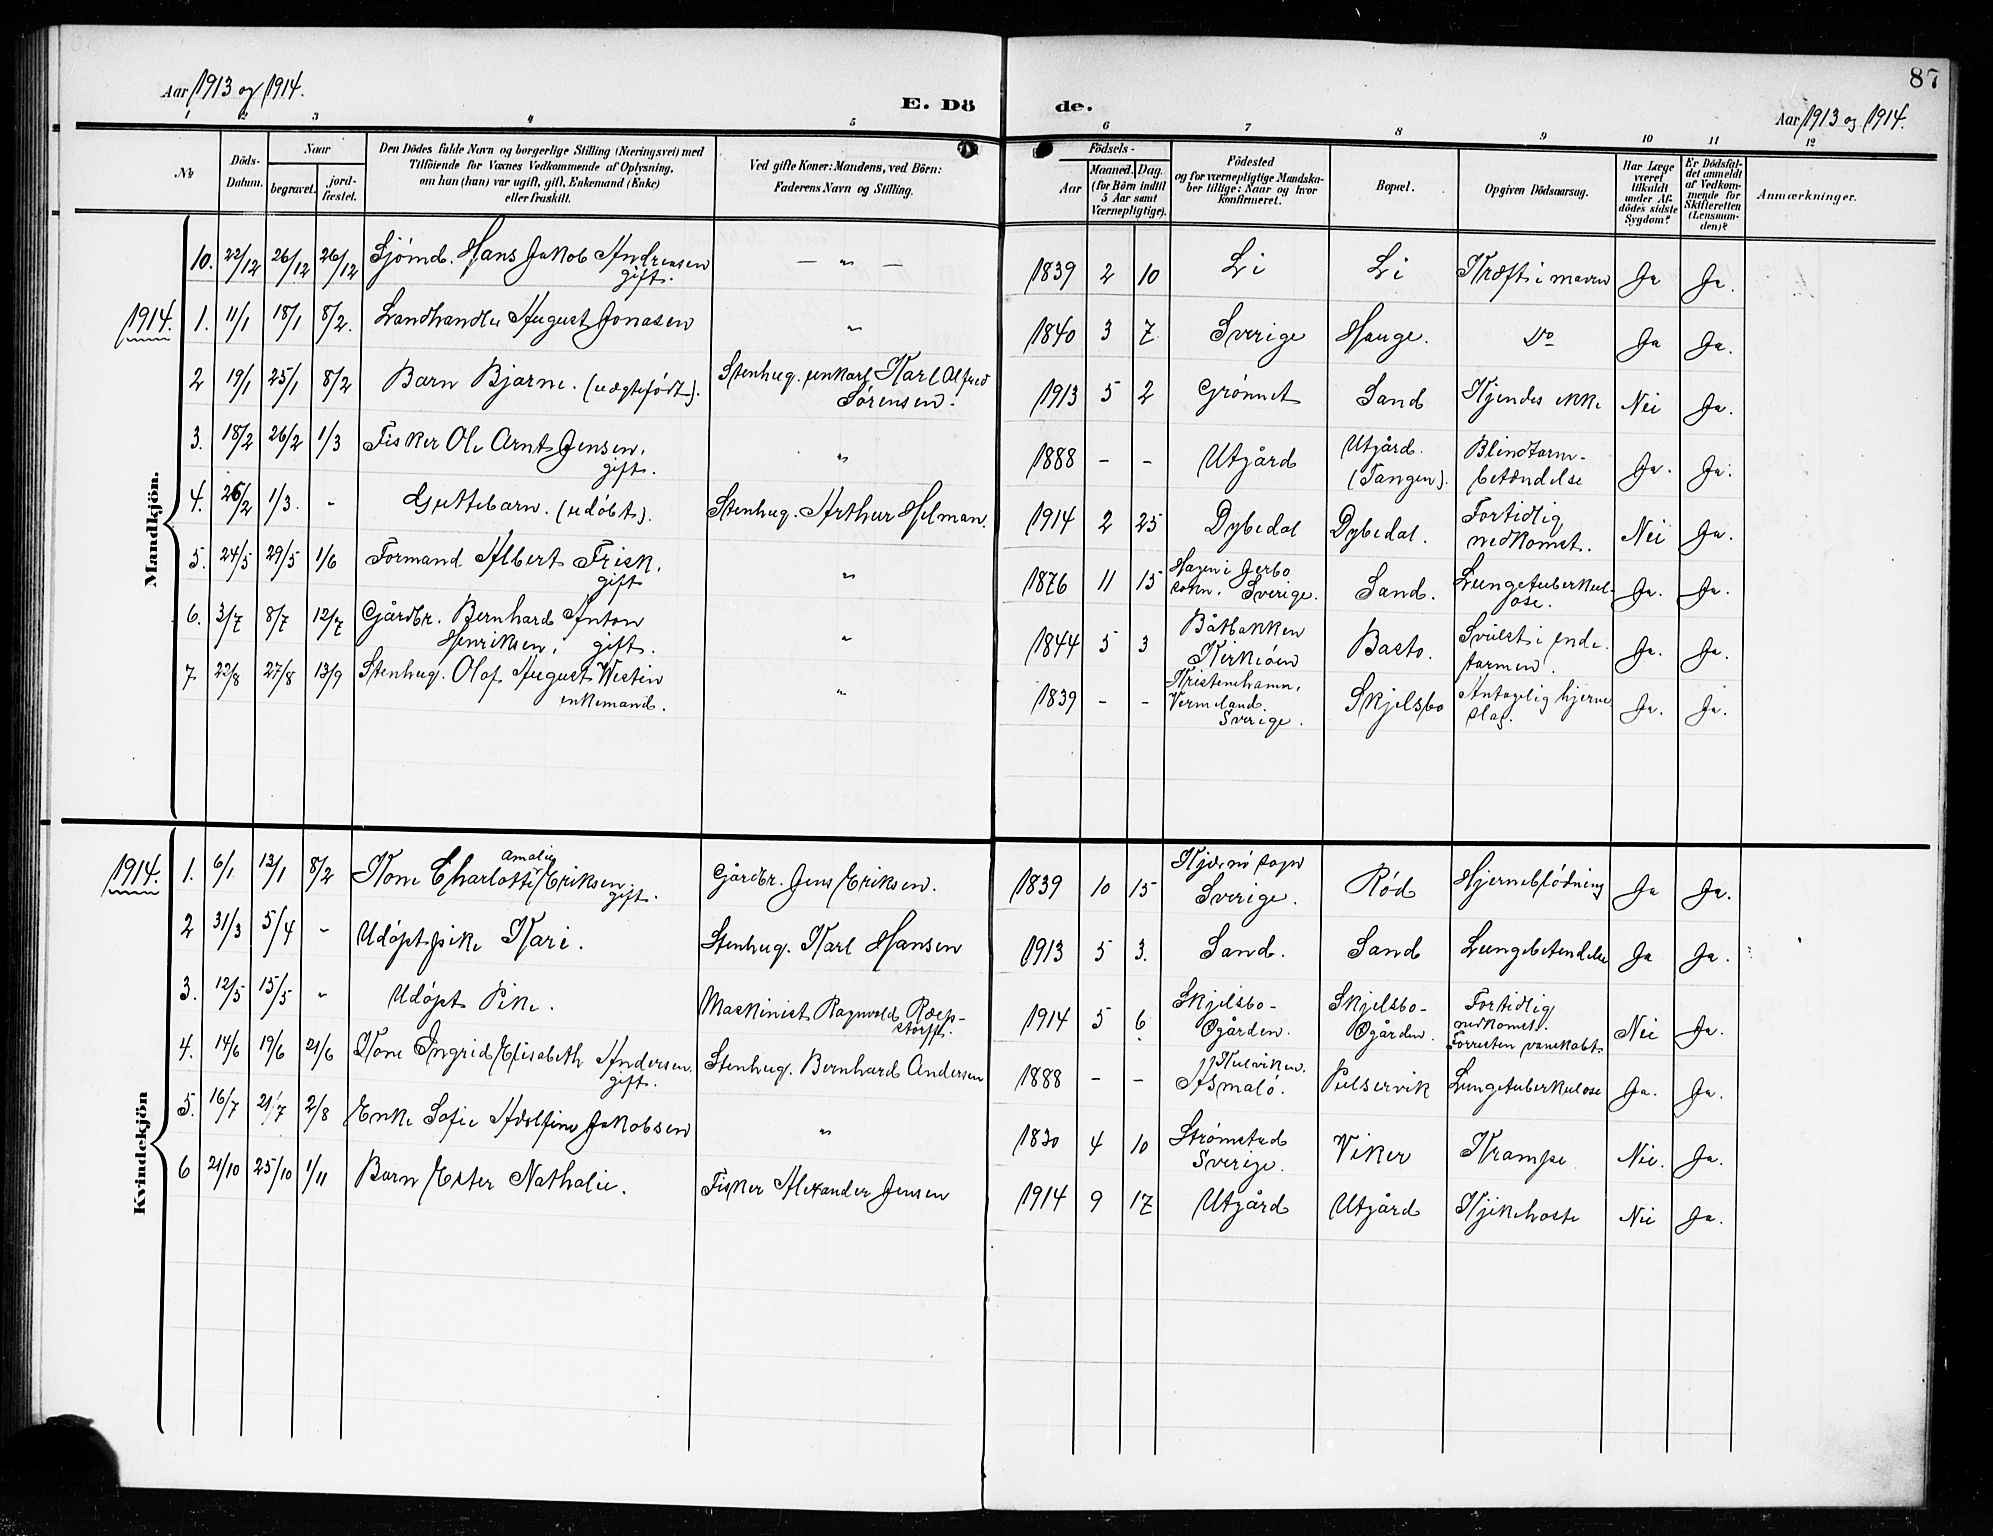 87
Aar 1913 og 1914.
E. Dö de.
Aar 1913 og 1914.
1 2 3 4 5 6 7 8 9 10 11 12
No
Döds-
Datum.
Naar
begravet.
jord-
fæstet.
Den Dödes fulde Navn og borgerlige Stilling (Næringsvei) med
Tilföiende for Voxnes Vedkommende af Oplysning,
om han (hun) var ugift, gift, Enkemand (Enke)
eller fraskilt.
Ved gifte Koner: Mandens, ved Börn:
Faderens Navn og Stilling.
Födsels-
Aar
Maaned. Dag.
(for Börn indtil
5 Aar samt
Værnepligtige).
Födested
og for værnepligtige Mandska-
ber tillige: Naar og hvor
konfirmeret.
Bopæl.
Opgiven Dödsaarsag.
Har Læge
været
tilkaldt
under Af-
dödes sidste
Sygdom?
Er Dödsfal-
det anmeldt
af Vedkom-
mende for
Skifteretten
(Lensman-
den)?
Anmærkninger.
Mandkjön.
10. 22/12 26/12 26/12 Sjømd. Hans Jakob Andreasen
gift.
— „ — 1839 2 10 Li Li Kræft i maven Ja Ja.
1914.
1. 11/1 18/1 8/2. Landhandler August Jonasen „ 1840 3 7 Sverige Hauge. Do Ja Ja.
2 19/1 25/1 8/2 Barn Bjarne. (uægtefødt). Stenhug. unkarl Karl Alfred
Sørensen. 1913 5 2 Grønnet Sand Kjendes ikke Nei Ja.
3. 18/2 26/2 1/3 Fisker Ole Arnt Jensen.
gift. „ 1888 - - Utgård Utgård.
(Tangen). Blindtarm-
betændelse Ja. Ja.
4. 26/2 1/3. - Guttebarn. (udøbt). Stenhug. Arthur Helman. 1914 2 25 Dybedal Dybedal. Fortidlig
nedkomst. Nei Ja.
5. 24/5 29/5 1/6 Formand Albert Frisk.
gift „ 1876 11 15 Hagen i Gerbo
sokn. Sverige. Sand. Lungetuberkul-
ose. Ja. Ja.
6. 3/7 8/7 12/7 Gårdbr. Bernhard Anton
Henriksen. gift. „ 1844 5 3 Båtbakken
Kirkeøen Basto. Svulst i ende-
tarmen. Ja. Ja.
7 22/8 27/8 13/9 Stenhug. Olof August Westin
enkemand. „ 1839 - - Kristenehamn,
Vermeland.
Sverige. Skjelsbo Antagelig hjerne
slag. Ja. Ja.
Kvindekjön
1914.
1. 6/1 13/1 8/2 Kone Charlotte Amalie Eriksen.
gift. Gårdbr. Jens Eriksen. 1839 10 15 Kjernø sogn
Sverige. Rød Hjerneblødning Ja Ja.
2 31/3 5/4 - Udøpt pike Kari. Stenhug. Karl Hansen 1913 5 3. Sand. Sand Lungebetendelse Ja Ja.
3. 12/5 15/5 „ Udøpt Pike. Maskinist Ragnvald Roep-
storff. 1914 5 6 Skjelsbo-
Øgården. Skjelsbo-
Øgården. Fortidlig
nedkomst.
Forresten vanskabt. Nei Ja.
4. 14/6 19/6 21/6 Kone Ingrid Elisabeth Andersen.
gift. Stenhug. Bernhard Andersen 1888 - - Kulviken.
Asmalø. Pulservik Lungetuberkulose Ja. Ja.
5. 16/7 21/7 2/8 Enke Sofie Adolfine Jakobsen „ 1830 4 10 Strømstad
Sverige. Viker Krampe Nei. Ja.
6 21/10 25/10 1/11 Barn Ester Nathalie. Fisker Alexander Jensen 1914 9 17 Utgård Utgård Kjikehoste Nei Ja.